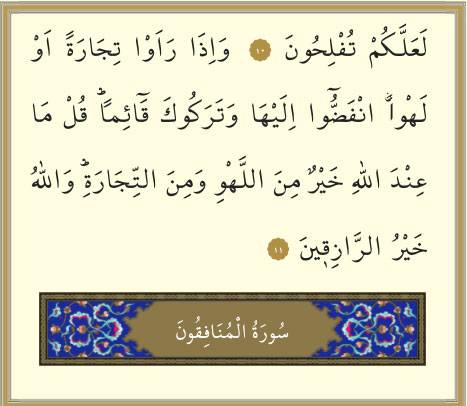 لَعَلَّكُمْ تُفْلِحُونَ ﴿١٠﴾ وَاِذَا رَاَوْا تِجَارَةً اَوْ
لَهْوًاۨ انْفَضُّٓوا اِلَيْهَا وَتَرَكُوكَ قَٓائِمًاۜ قُلْ مَا
عِنْدَ اللّٰهِ خَيْرٌ مِنَ اللَّهْوِ وَمِنَ التِّجَارَةِۜ وَاللّٰهُ
خَيْرُ الرَّازِق۪ينَ ﴿١١﴾
سُورَةُ الْمُنَافِقُونَ